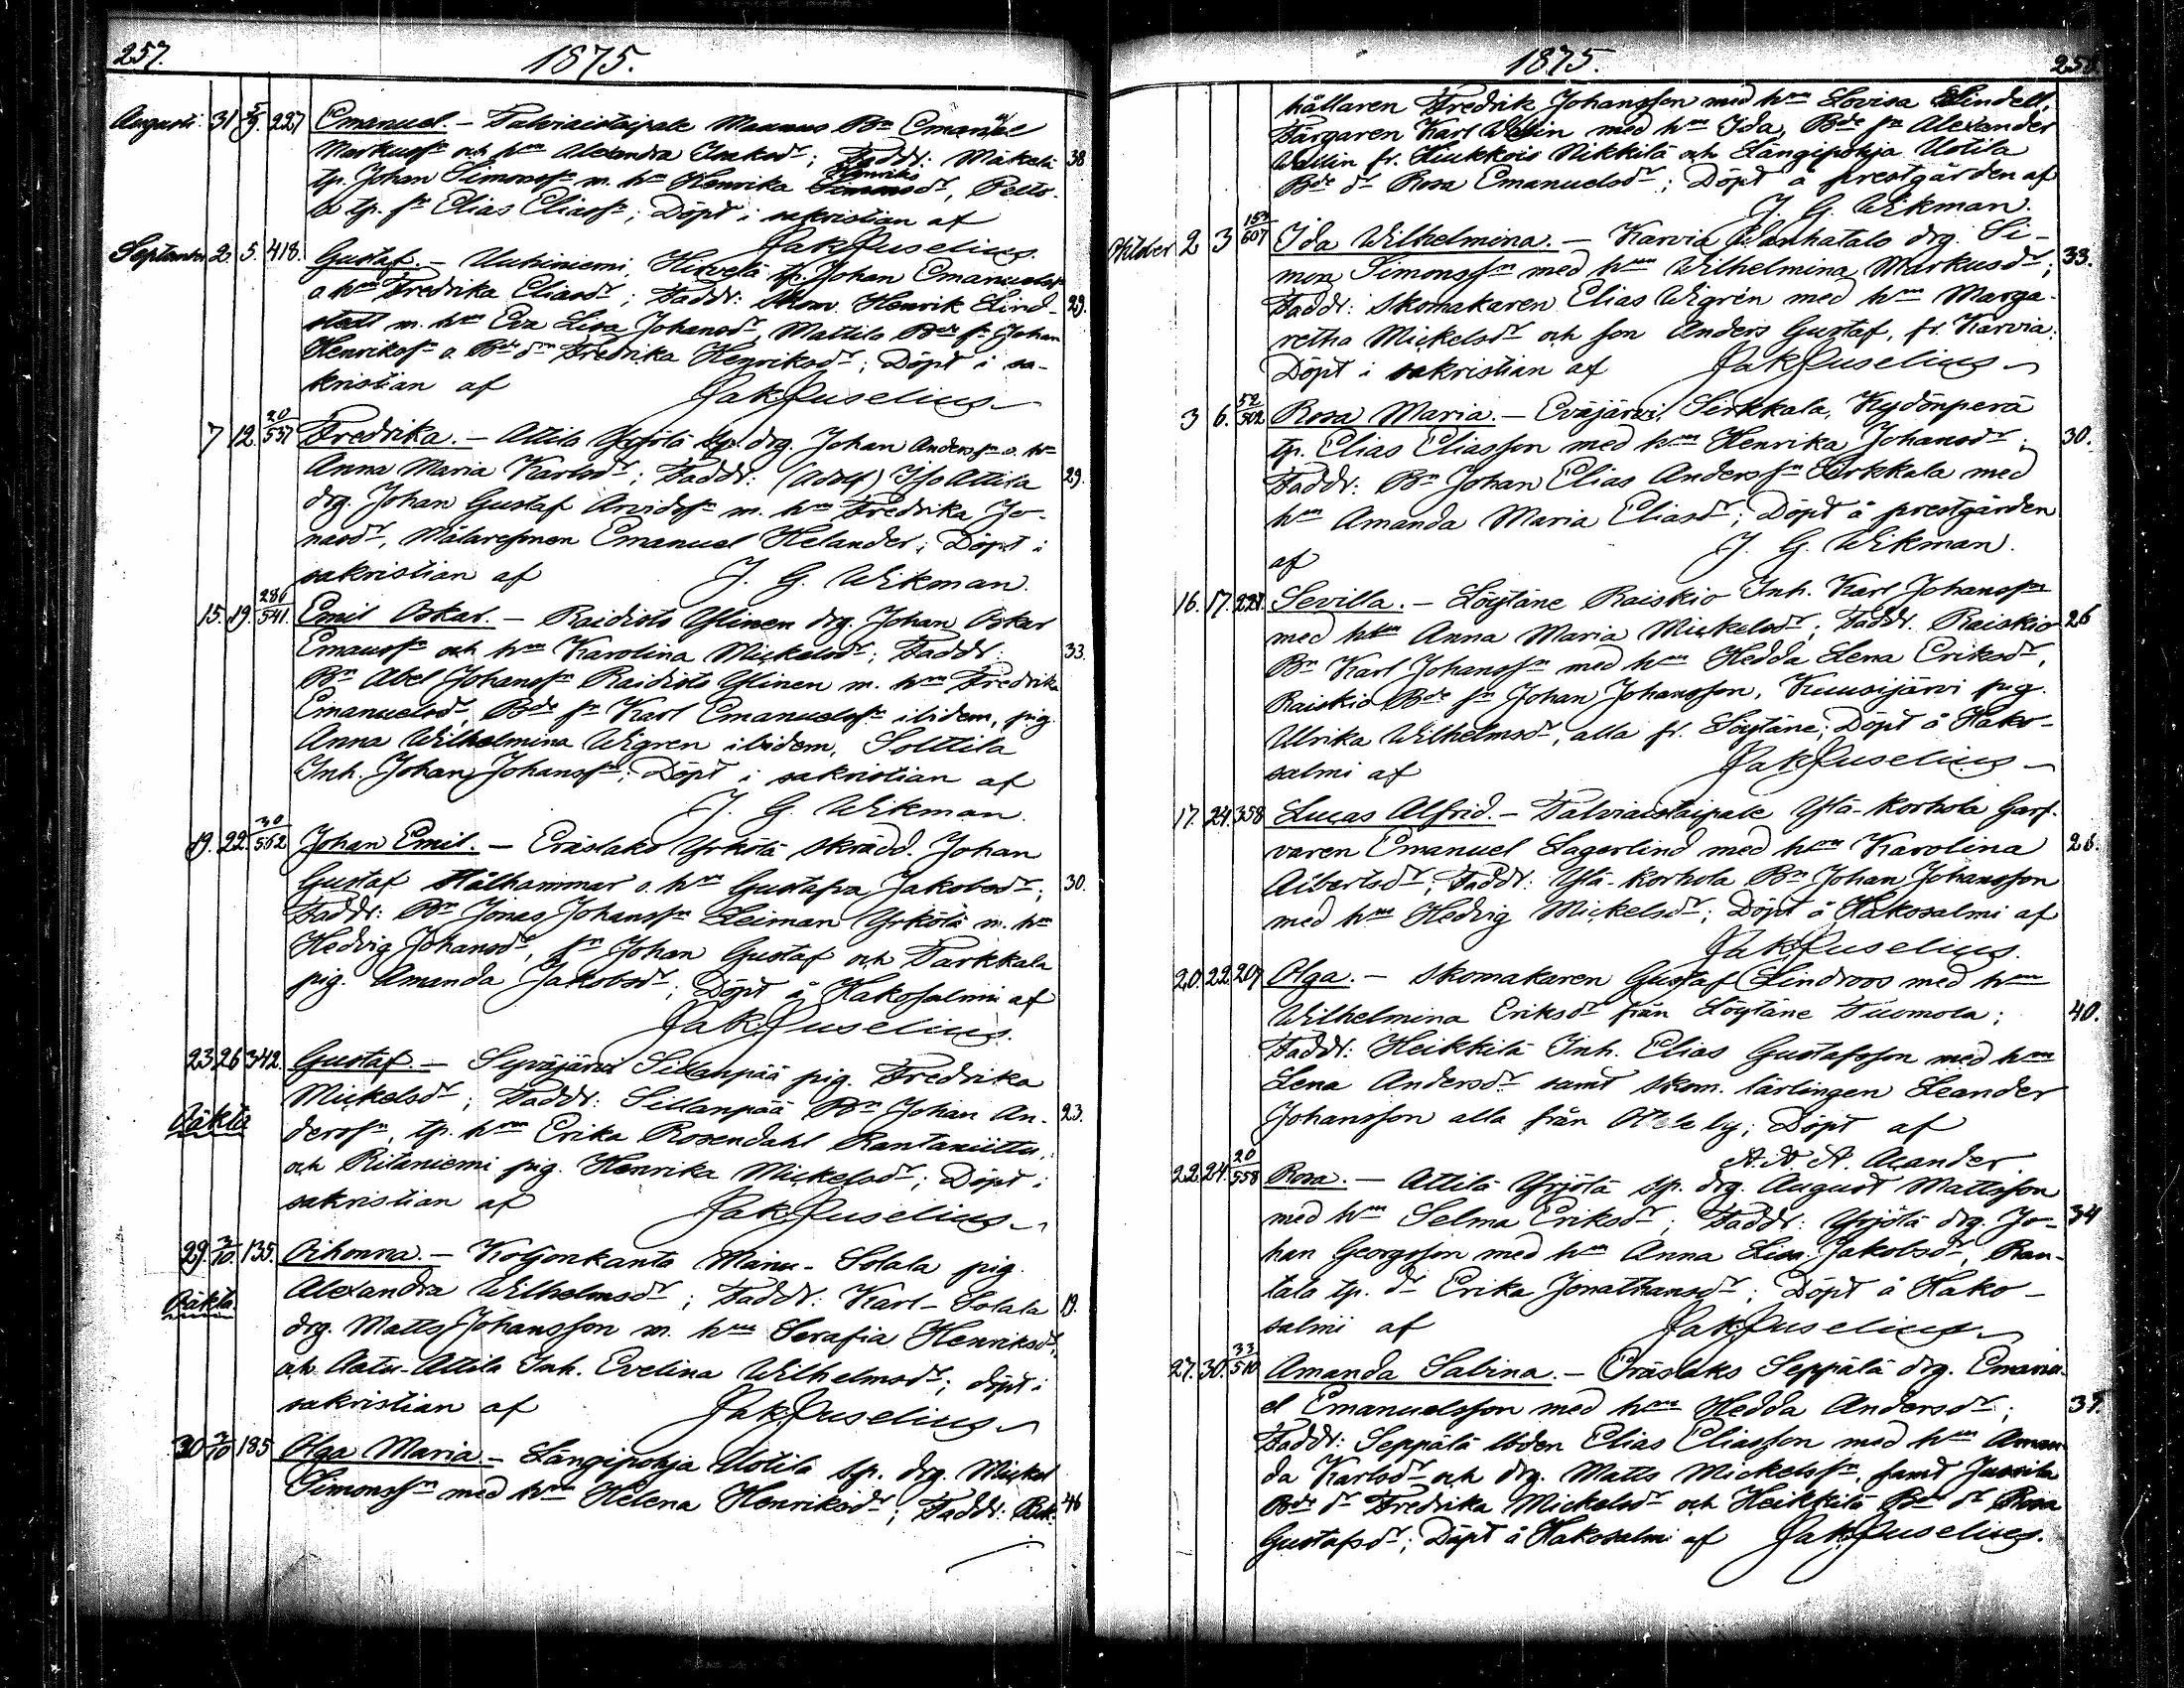 257.
1875.
Augusti 31 5/9. 227 Emanuel. – Talviaistaipale Maunus Bn Emanuel
Markusson och hm Alexandra Isaksdr; Faddr: Mäkelä 38
tp. Johan Simonsson m. hu Henrika Henriksdr, Pelto-
la tp. sn Elias Eliasson; Döpt i sakristian af
Jak. Juselius.
September 2. 5. 418. Gustaf. – Uuhiniemi, Hirvelä tp. Johan Emanuelsson
o. hm Fredrika Eliasdr; Faddr: Skom. Henrik Lind- 29.
stedt m. hm Eva Lisa Johansdr, Mattila Bde sn Johan
Henriksson o. Bde dn Fredrika Henriksdr; Döpt i sa-
kristian af Jak. Juselius
7 12. 20/537 Fredrika. – Attila Yrjölä sp. drg. Johan Andersson o. hm
Anna Maria Karlsdr; Faddr: (Adolf) Iso Attila 29.
drg. Johan Gustaf Arvidsson m. hm Fredrika Jo-
nasdr, Målaresonen Emanuel Helander; Döpt i
sakristian af J. G. Wikman.
15. 19. 286/541. Emil Oskar. – Raidisto Ylinen drg. Johan Oskar
Emanuelsson och hm Karolina Mickelsdr; Faddr: 33.
Bn Abel Johansson Raidisto Ylinen m. hm Fredrika
Emanuelsdr, Bde sn Karl Emanuelsson ibidem, pig.
Anna Wilhelmina Wigren ibidem, Solttila
Inh. Johan Johansson; Döpt i sakristian af
J. G. Wikman.
19. 22. 30/562 Johan Emil. – Eräslaks Yrkölä skrädd. Johan
Gustaf Stålhammar o. hm Gustafva Jakobsdr; 30.
Faddr: Bn Jonas Johansson Leiman Yrkölä m. hm
Hedvig Johansdr, sn Johan Gustaf och Tarkkala
pig. Amanda Jakobsdr; Döpt å Hakosalmi af
Jak. Juselius.
23. 26 342. Gustaf. – Syväjärvi Sillanpää pig. Fredrika
Mickelsdr; Faddr: Sillanpää Bn Johan An- 23.
Oäkta dersson, tp. hm Erika Rosendahl Rantaniittu,
och Ritaniemi pig. Henrika Mickelsdr; Döpt i
sakristian af Jak. Juselius
29. 3/10. 135. – Koljonkanta Manu-Solala pig.
Alexandra Wilhelmsdr; Faddr: Karl-Solala 19.
Oäkta drg. Matts Johansson m. hm Serafia Henriksdr,
och Aatu-Attila Inh. Evelina Wilhelmsdr; döpt i
sakristian af Jak. Juselius
30 3/10 185 Olga Maria. – Längipohja Uotila sp. drg. Mickel
Simonsson med hm Helena Henriksdr; Faddr: Bok- 46
1875.
258.
hållaren Fredrik Johansson med hm Lovisa Lindell,
Färgaren Karl Wallin med hm Ida, Bde sn Alexander
Wallin fr. Hiukkois Nikkilä och Längipohja Uotila
Bde dr Rosa Emanuelsdr; Döpt å prestgården af
J. G. Wikman.
Oktober 2 3 153/607 Ida Wilhelmina. – Karvia Wanhatalo drg. Si-
mon Simonsson med hm Wilhelmina Markusdr; 33.
Faddr: Skomakaren Elias Wigrén med hm Marga-
retha Mickelsdr och son Anders Gustaf, fr. Karvia.
Döpt i sakristian af Jak. Juselius
3 6. 52/502 Rosa Maria. – Eväjärvi Serkkala, Kydönperä
tp. Elias Eliasson med hm Henrika Johansdr; 30.
Faddr: Bn Johan Elias Andersson Serkkala med
hm Amanda Maria Eliasdr; Döpt å prestgården
af J. G. Wikman.
16. 17. 227. Sevilla. – Löytäne Raiskio Inh. Karl Johansson
med hm Anna Maria Mickelsdr; Faddr. Raiskio 26
Bn Karl Johansson med hm Hedda Lena Eriksdr,
Raiskio Bde sn Johan Johansson, Kuusijärvi pig.
Ulrika Wilhelmsdr, alla fr. Löytäne; Döpt å Hako-
salmi af Jak. Juselius
17. 24. 358 Lucas Alfrid. – Talviaistaipale Ylä-Korhola Garf-
varen Emanuel Lagerlind med hm Karolina 26.
Albertsdr; Faddr: Ylä-Korhola Bn Johan Johansson
med hm Hedvig Mickelsdr; Döpt å Hakosalmi af
Jak. Juselius.
20. 22. 207 Olga. – Skomakaren Gustaf Lindroos med hm
Wilhelmina Eriksdr från Löytäne Tuomola; 40.
Faddr: Heikkilä Inh. Elias Gustafsson med hm
Lena Andersdr samt skom. lärlingen Leander
Johansson alla från by; Döpt af
Acander.
22. 24. 20/558 Rosa. – Attila Yrjölä sp. drg. August Mattsson
med hm Selma Eriksdr; Faddr: Yrjölä drg. Jo- 34
han Georgsson med hm Anna Lisa Jakobsdr, Ran-
tala tp. dr Erika Jonathansdr; Döpt å Hako-
salmi af Jak. Juselius
27. 30. 33/510 Amanda Sabina. – Eräslaks Seppälä drg. Emanu-
el Emanuelsson med hm Hedda Andersdr; 37.
Faddr: Seppälä löden Elias Eliasson med hm Aman-
da Karlsdr och drg. Matts Mickelsson, samt Jussila
Bde dr Fredrika Mickelsdr och Heikkilä Bde dr Rosa
Gustafsdr; Döpt å Hakosalmi af Jak. Juselius.